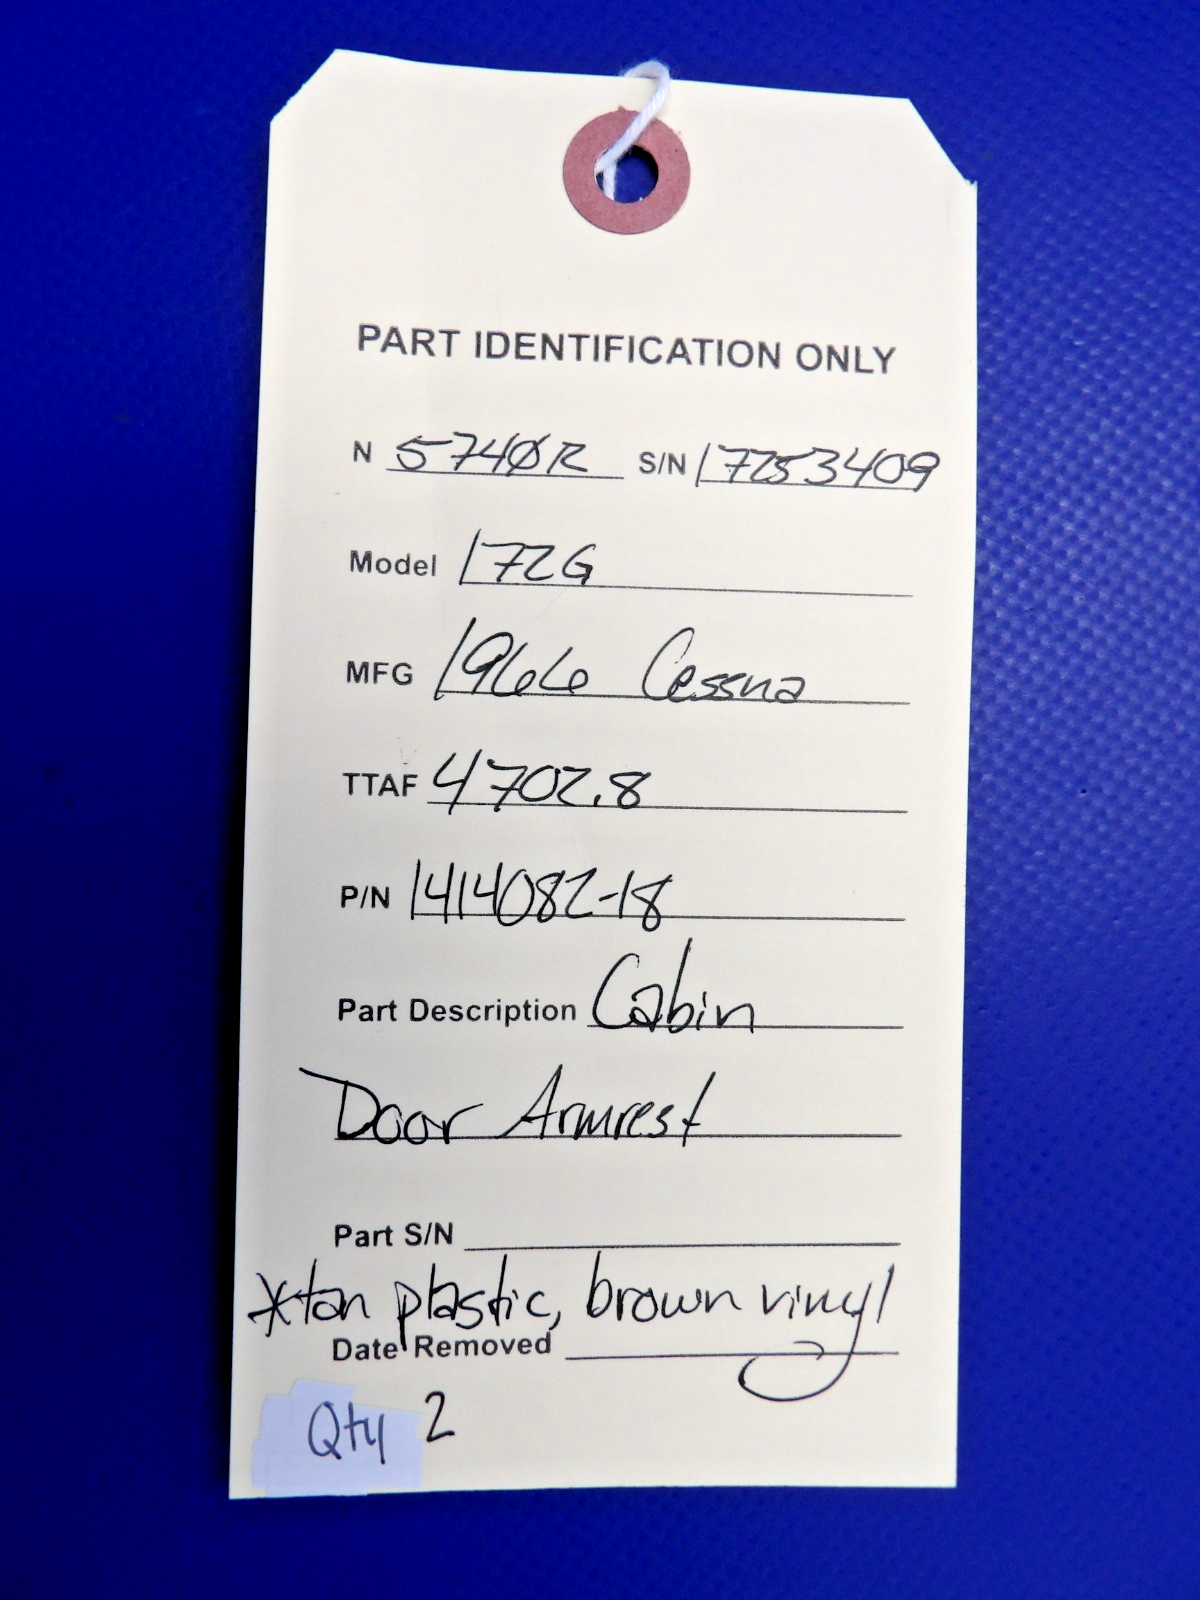 PART IDENTIFICATION ONLY
N 5740R S/N 17253409
Model 172G
MFG 1966 Cessna
TTAF 4702.8
P/N 1414082-18
Part Description Cabin
Door Armrest
Part S/N
*tan plastic, brown vinyl
Date Removed
Qty 2